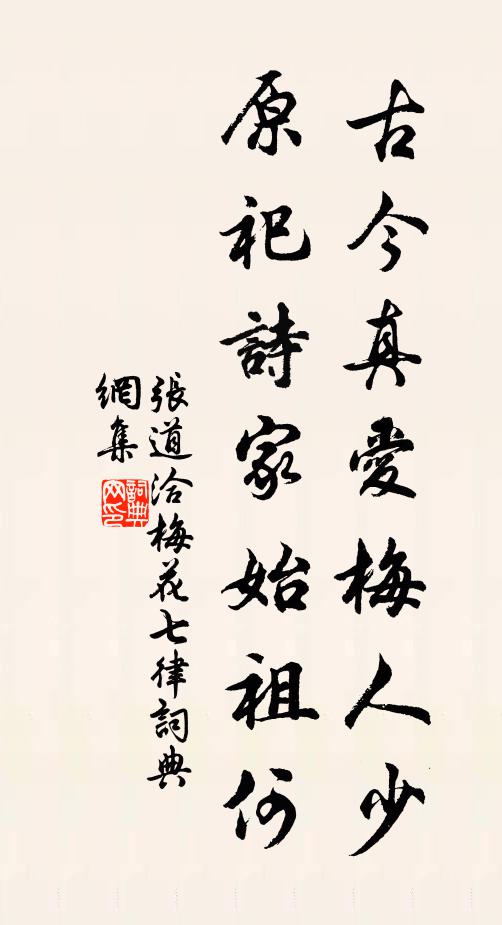 古今真愛梅人少
原祀詩家始祖何
張道洽梅花七律詞典
網集
詞典
网印